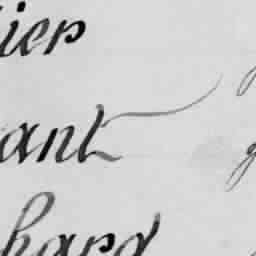 ier
ant
hard